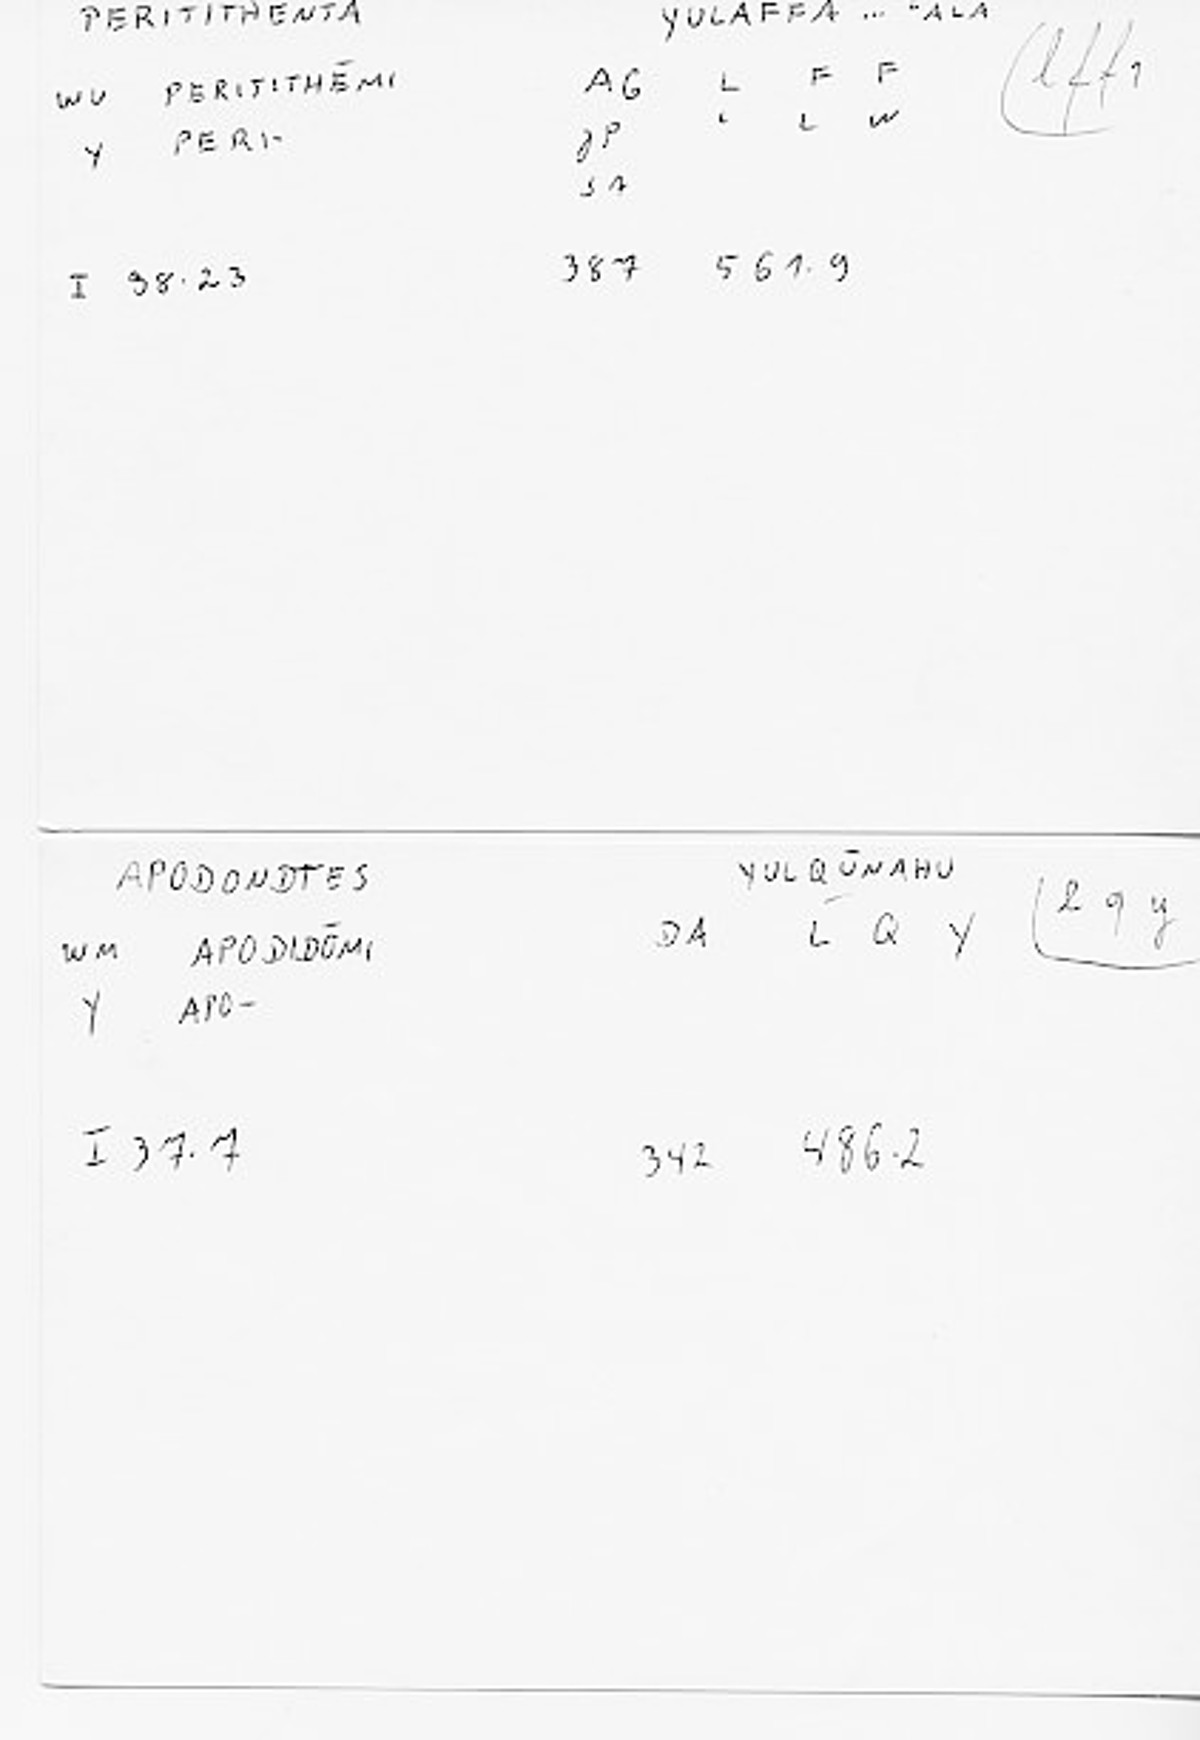 PERITITHENTA YULAFFA ... ʿALA
WU PERITITHĒMI AG L F F lff1
Y PERI- JP L L W
SA
I 38.23 387 561.9
APODONDTES YULQŪNAHU
WM APODIDŌMI DA L Q Y lqy
Y APO-
I 37.7 342 486.2